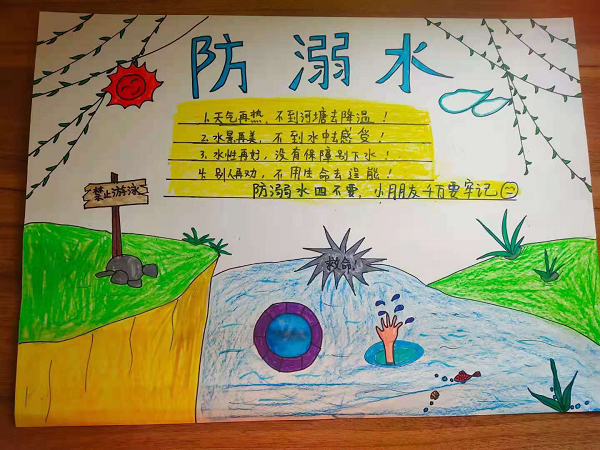 防溺水
1.天气再热，不到河塘去降温！
2.水景再美，不到水中去感受！
3.水性再好，没有保障别下水！
4.别人再劝，不用生命去逞能！
防溺水四不要，小朋友千万要牢记
禁止游泳
救命！